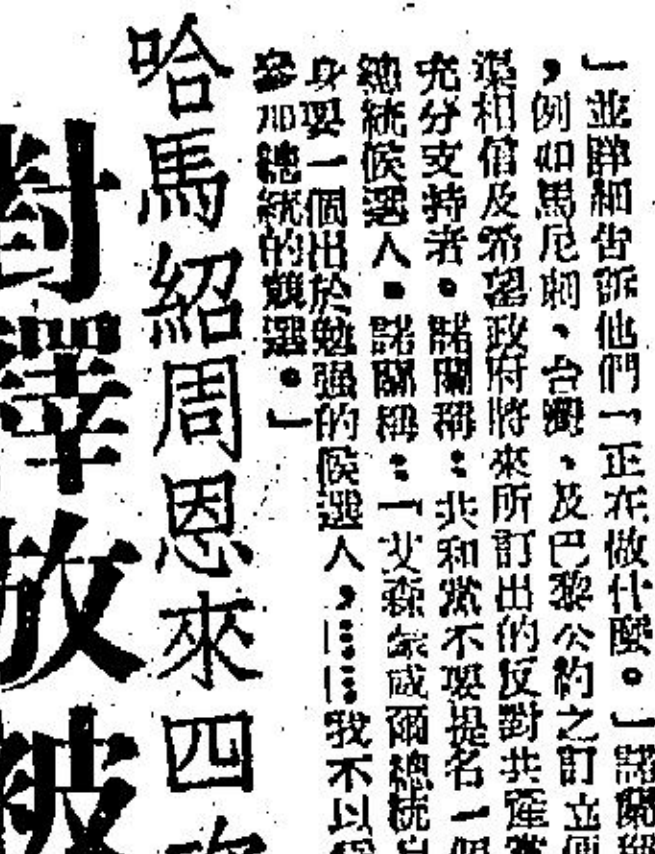 」並詳細告訴他們「正在做什麼。」諾蘭
，例如馬尼剌、台灣、及巴黎公約之訂立便
深相信及希望政府將來所訂出的反對共產黨
充分支持者。諾蘭稱：共和黨不要提名一個
總統候選人。諾蘭稱：「艾森豪威爾總統
身要一個出於勉强的候選人，……我不以
參加總統的競選。」
哈馬紹周恩來四
對釋放被